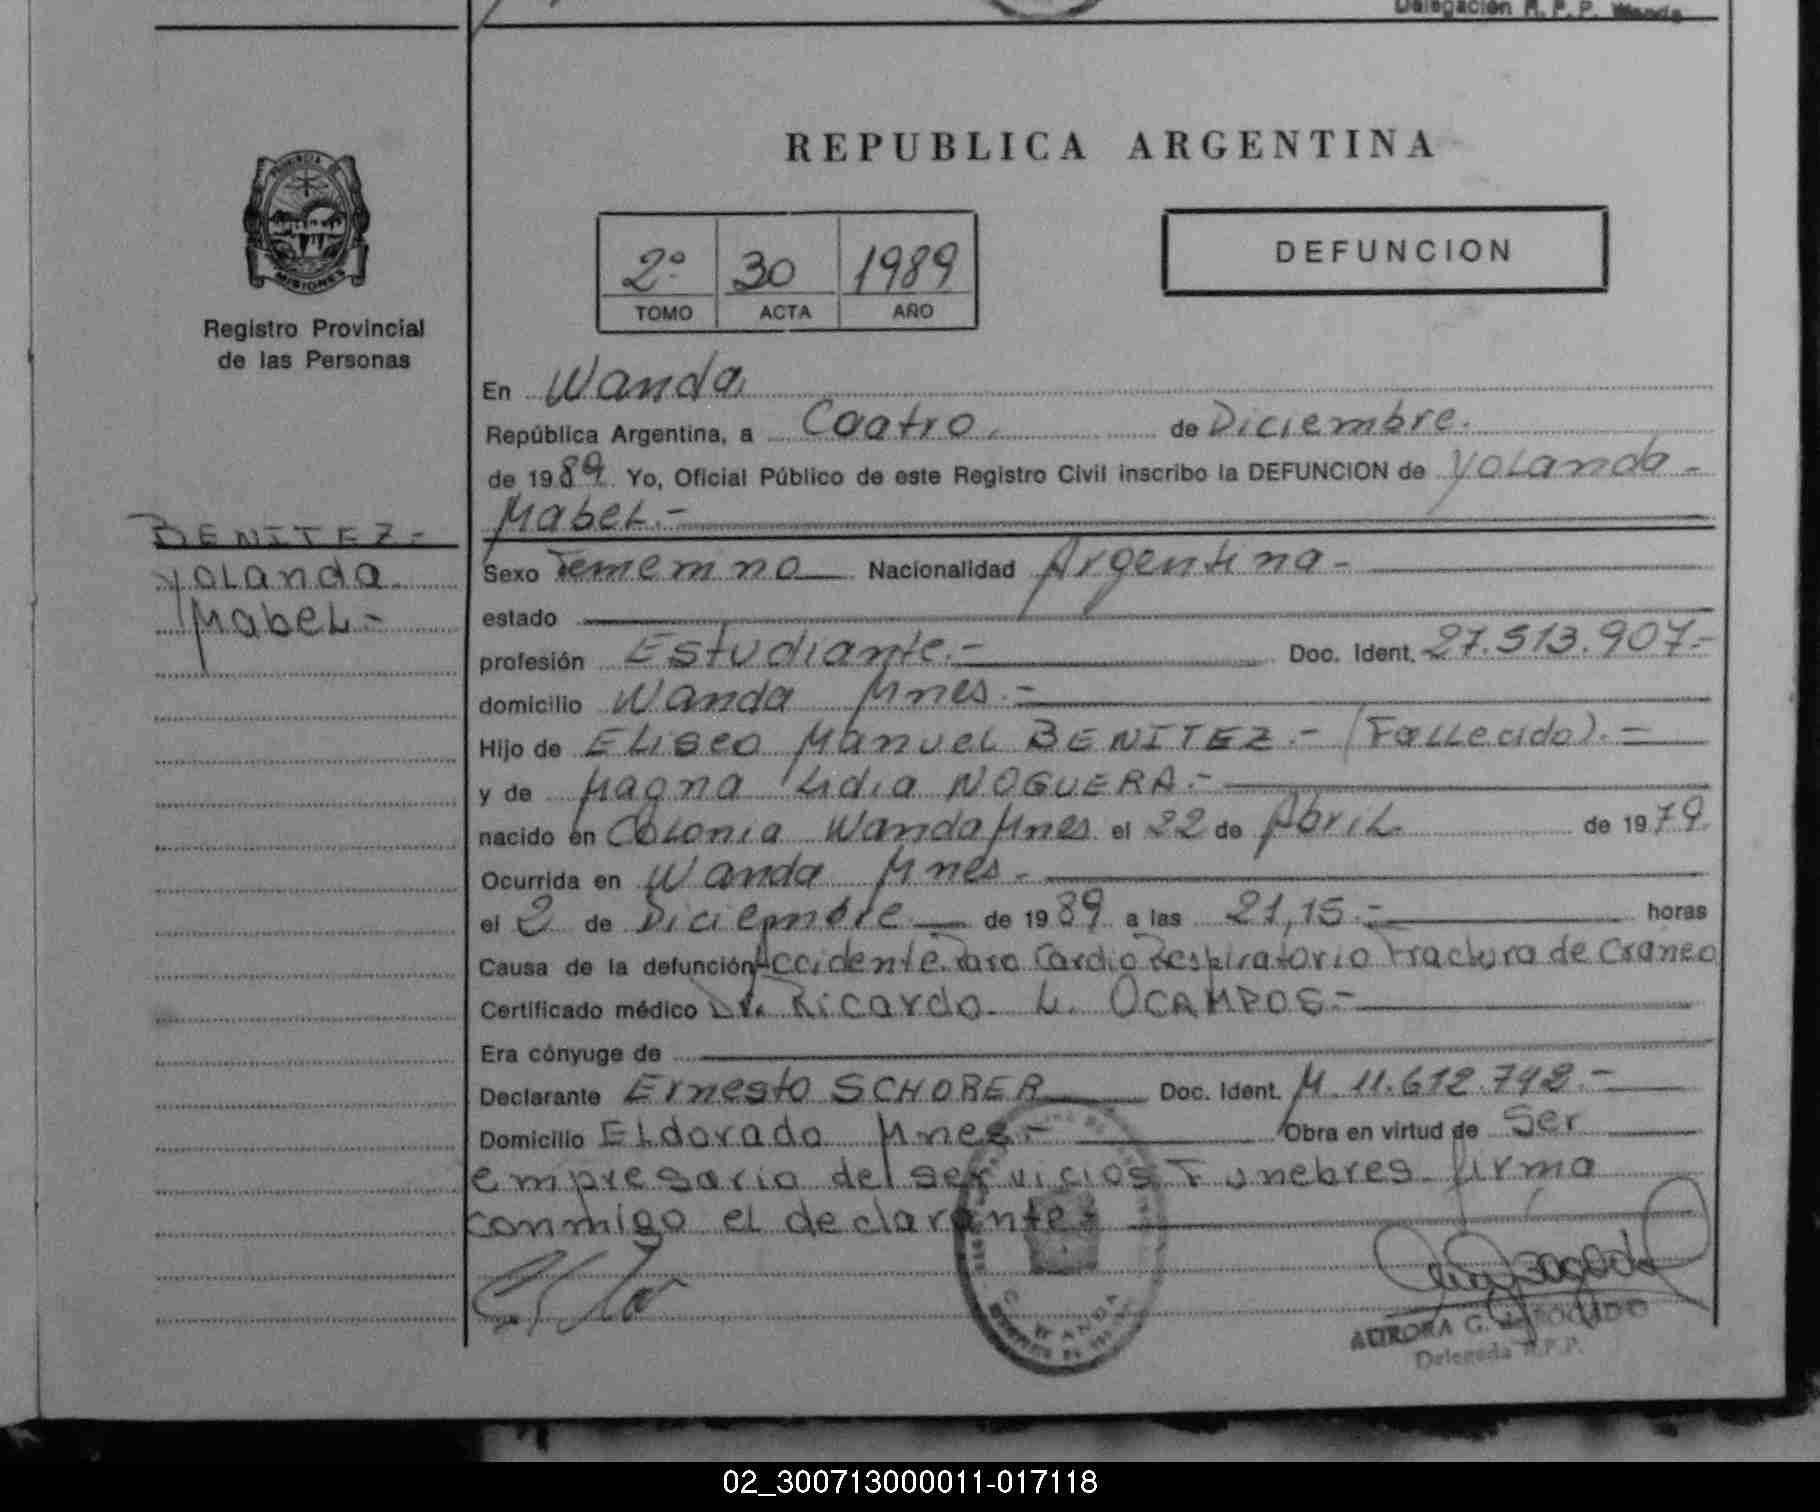 Delegación R. P. P. Wanda
REPUBLICA ARGENTINA
PROVINCIA
MISIONES
Registro Provincial
de las Personas
DEFUNCION
2º 30 1989
TOMO ACTA AÑO
En Wanda
República Argentina, a Coatro. de Diciembre.
de 1989. Yo, Oficial Público de este Registro Civil inscribo la DEFUNCION de Yolanda -
Mabel.-
BENITEZ.-
Yolanda
Mabel.-
Sexo Femenino Nacionalidad Argentina -
estado
profesión Estudiante.- Doc. Ident. 27.513.907.-
domicilio Wanda Mnes.-
Hijo de Eliseo Manuel BENITEZ.- (Fallecido).-
y de Magna Lidia NOGUERA.-
nacido en Colonia Wanda Mnes el 22 de Abril de 1979.
Ocurrida en Wanda Mnes.-
el 2 de Diciembre de 1989 a las 21,15.- horas
Causa de la defunción Accidente. Paro Cardio Respiratorio Fractura de Craneo
Certificado médico Dr. Ricardo L. OCAMPOS.-
Era cónyuge de
Declarante Ernesto SCHOBER Doc. Ident. M. 11.612.742.-
Domicilio Eldorado Mnes.- Obra en virtud de Ser
empresario del servicios Funebres. firma
conmigo el declarante.-
WANDA
AURORA G. de BOGADO
Delegada R.P.P.
02_300713000011-017118